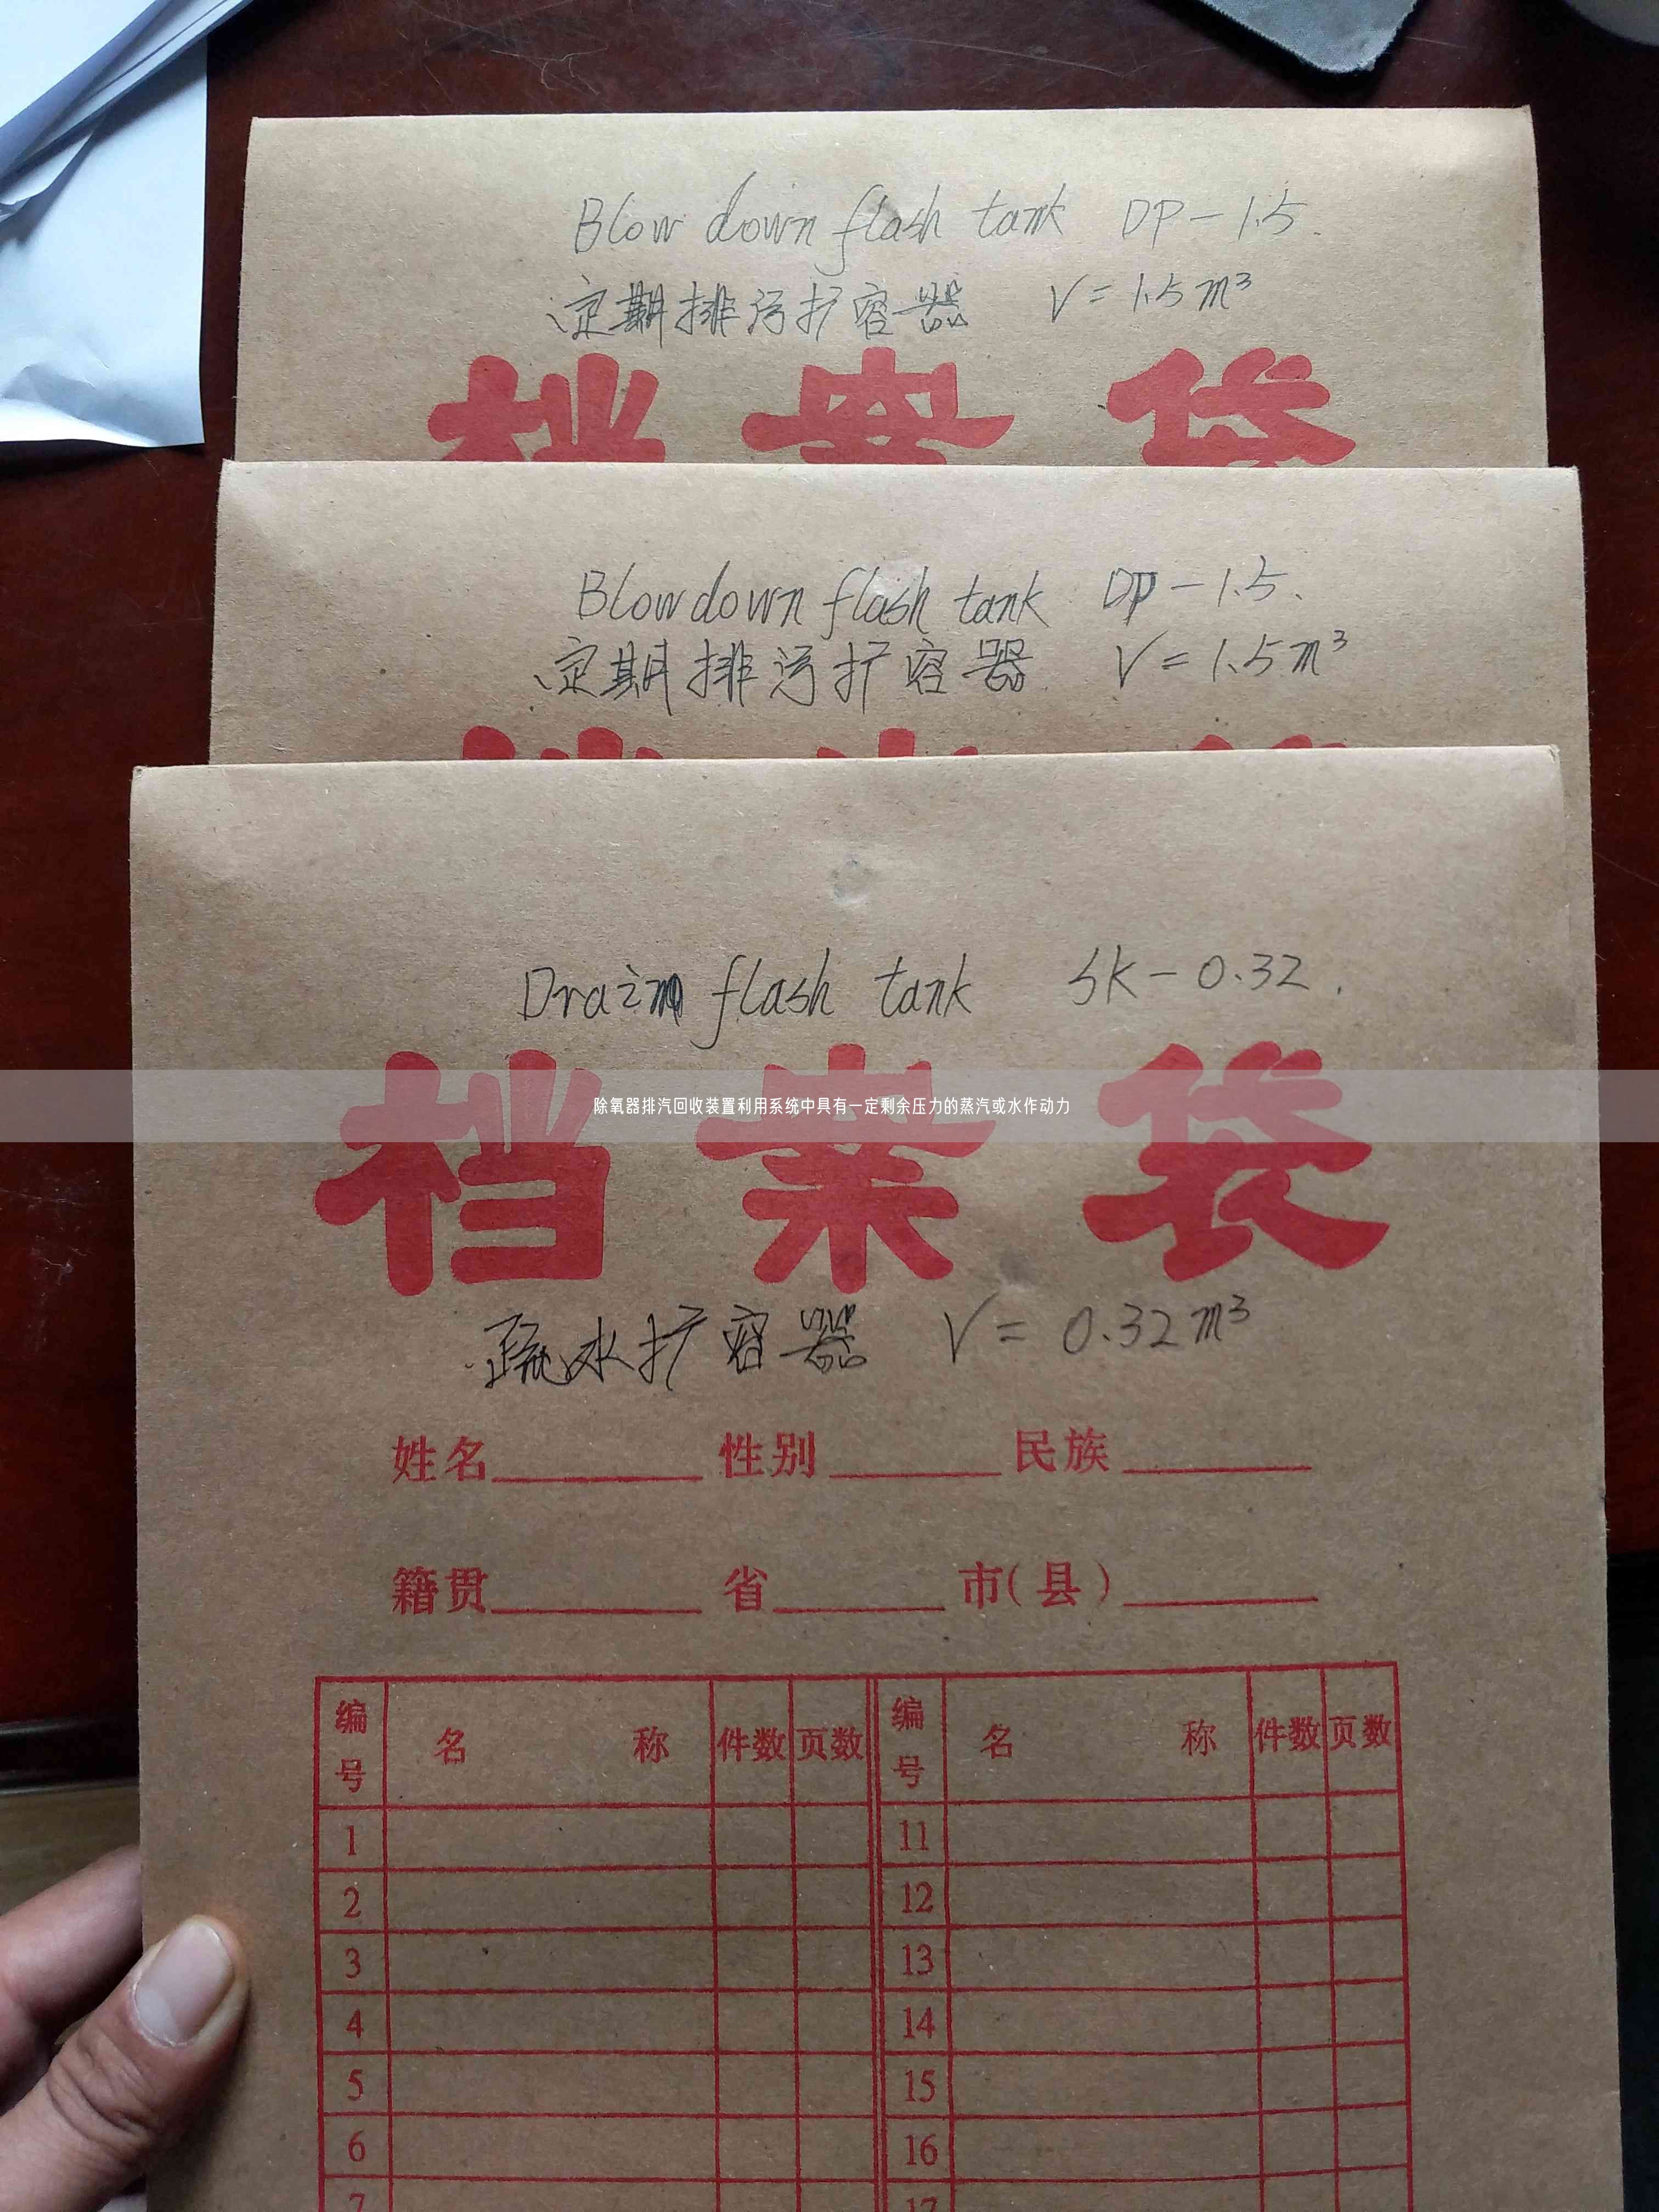 Blow down flash tank DP-1.5.
定期排污扩容器 V=1.5m³
档案袋
Blow down flash tank DP-1.5.
定期排污扩容器 V=1.5m³
档案袋
Drain flash tank SK-0.32.
除氧器排汽回收装置利用系统中具有一定剩余压力的蒸汽或水作动力
档案袋
疏水扩容器 V=0.32m³
姓名 性别 民族
籍贯 省 市(县)
编号 名称 件数 页数 编号 名称 件数 页数
1 11
2 12
3 13
4 14
5 15
6 16
7 17